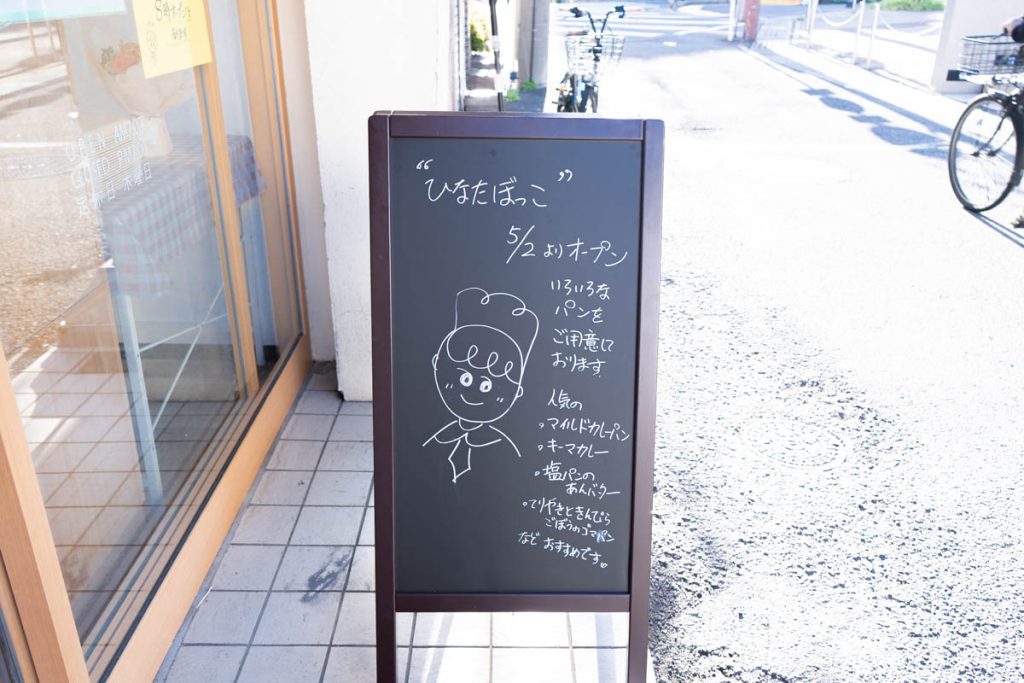 8時オープン
OPEN AM
定休日 木曜日
“ひなたぼっこ”
5/2よりオープン
いろいろな
パンを
ご用意して
おります。
人気の
・マイルドカレーパン
・キーマカレー
・塩パンの
あんバター
・てりやきときんぴら
ごぼうのゴマパン
など おすすめです。